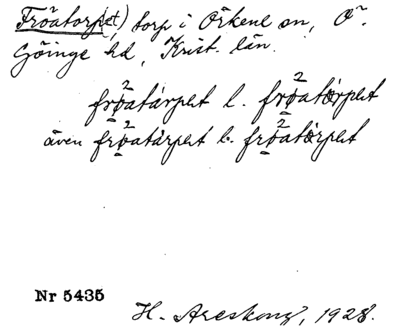 Fröatorp(et) torp i Örkene sn, Ö.
Göinge hd, Krist. län.
frøatàrpet l. frøatörpet
även frøatàrpet l. frøatörpet
Nr 5435
H. Areskoug, 1928.